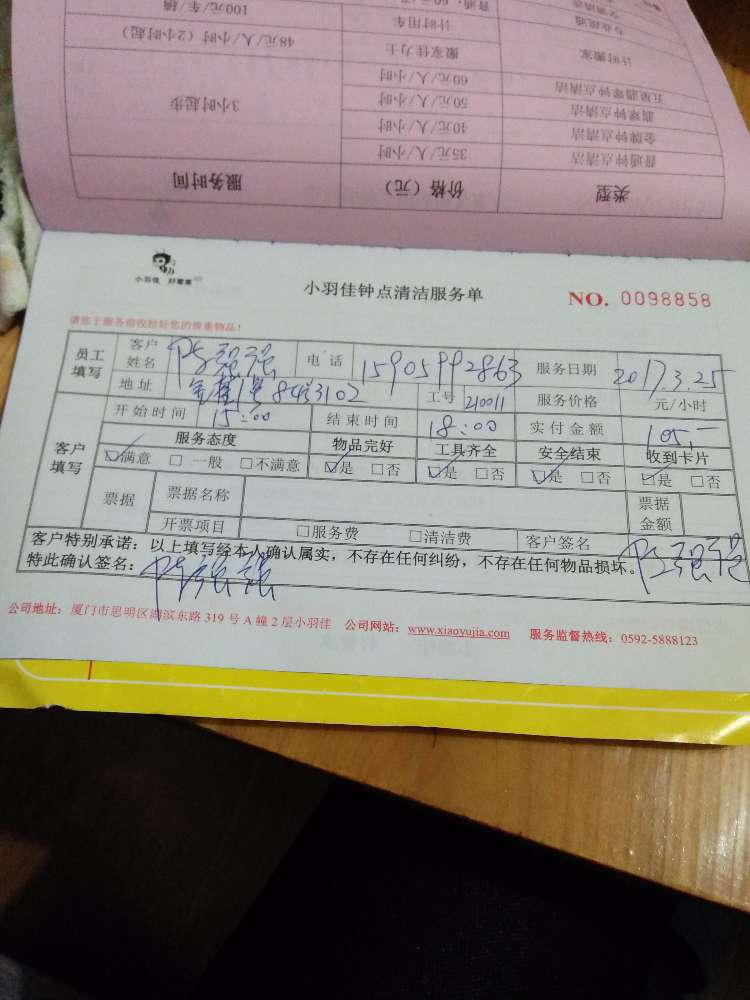 普通：60元/
空调清洗
专业疏通
计时用车
100元/车/辆
计时搬家
搬家佳力士
48元/人/小时（2小时起）
五星翡翠钟点清洁
60元/人/小时
翡翠钟点清洁
50元/人/小时
3小时起步
金牌钟点清洁
40元/人/小时
普通钟点清洁
35元/人/小时
类型
价格（元）
服务时间
小羽佳 好管家
小羽佳钟点清洁服务单
NO. 0098858
请您于服务前收拾好您的贵重物品！
员工填写 客户姓名 强强 电话 15905992863 服务日期 2017.3.25
地址 1号 3102 工号 210011 服务价格 元/小时
开始时间 15:00 结束时间 18:00 实付金额 105,-
客户填写 服务态度 物品完好 工具齐全 安全结束 收到卡片
☑满意 □一般 □不满意 ☑是 □否 ☑是 □否 ☑是 □否 ☑是 □否
票据 票据名称 票据金额
开票项目 □服务费 □清洁费 客户签名 强强
客户特别承诺：以上填写经本人确认属实，不存在任何纠纷，不存在任何物品损坏。
特此确认签名： 强强
公司地址：厦门市思明区湖滨东路 319 号 A 幢 2 层小羽佳 公司网站：www.xiaoyujia.com 服务监督热线：0592-5888123